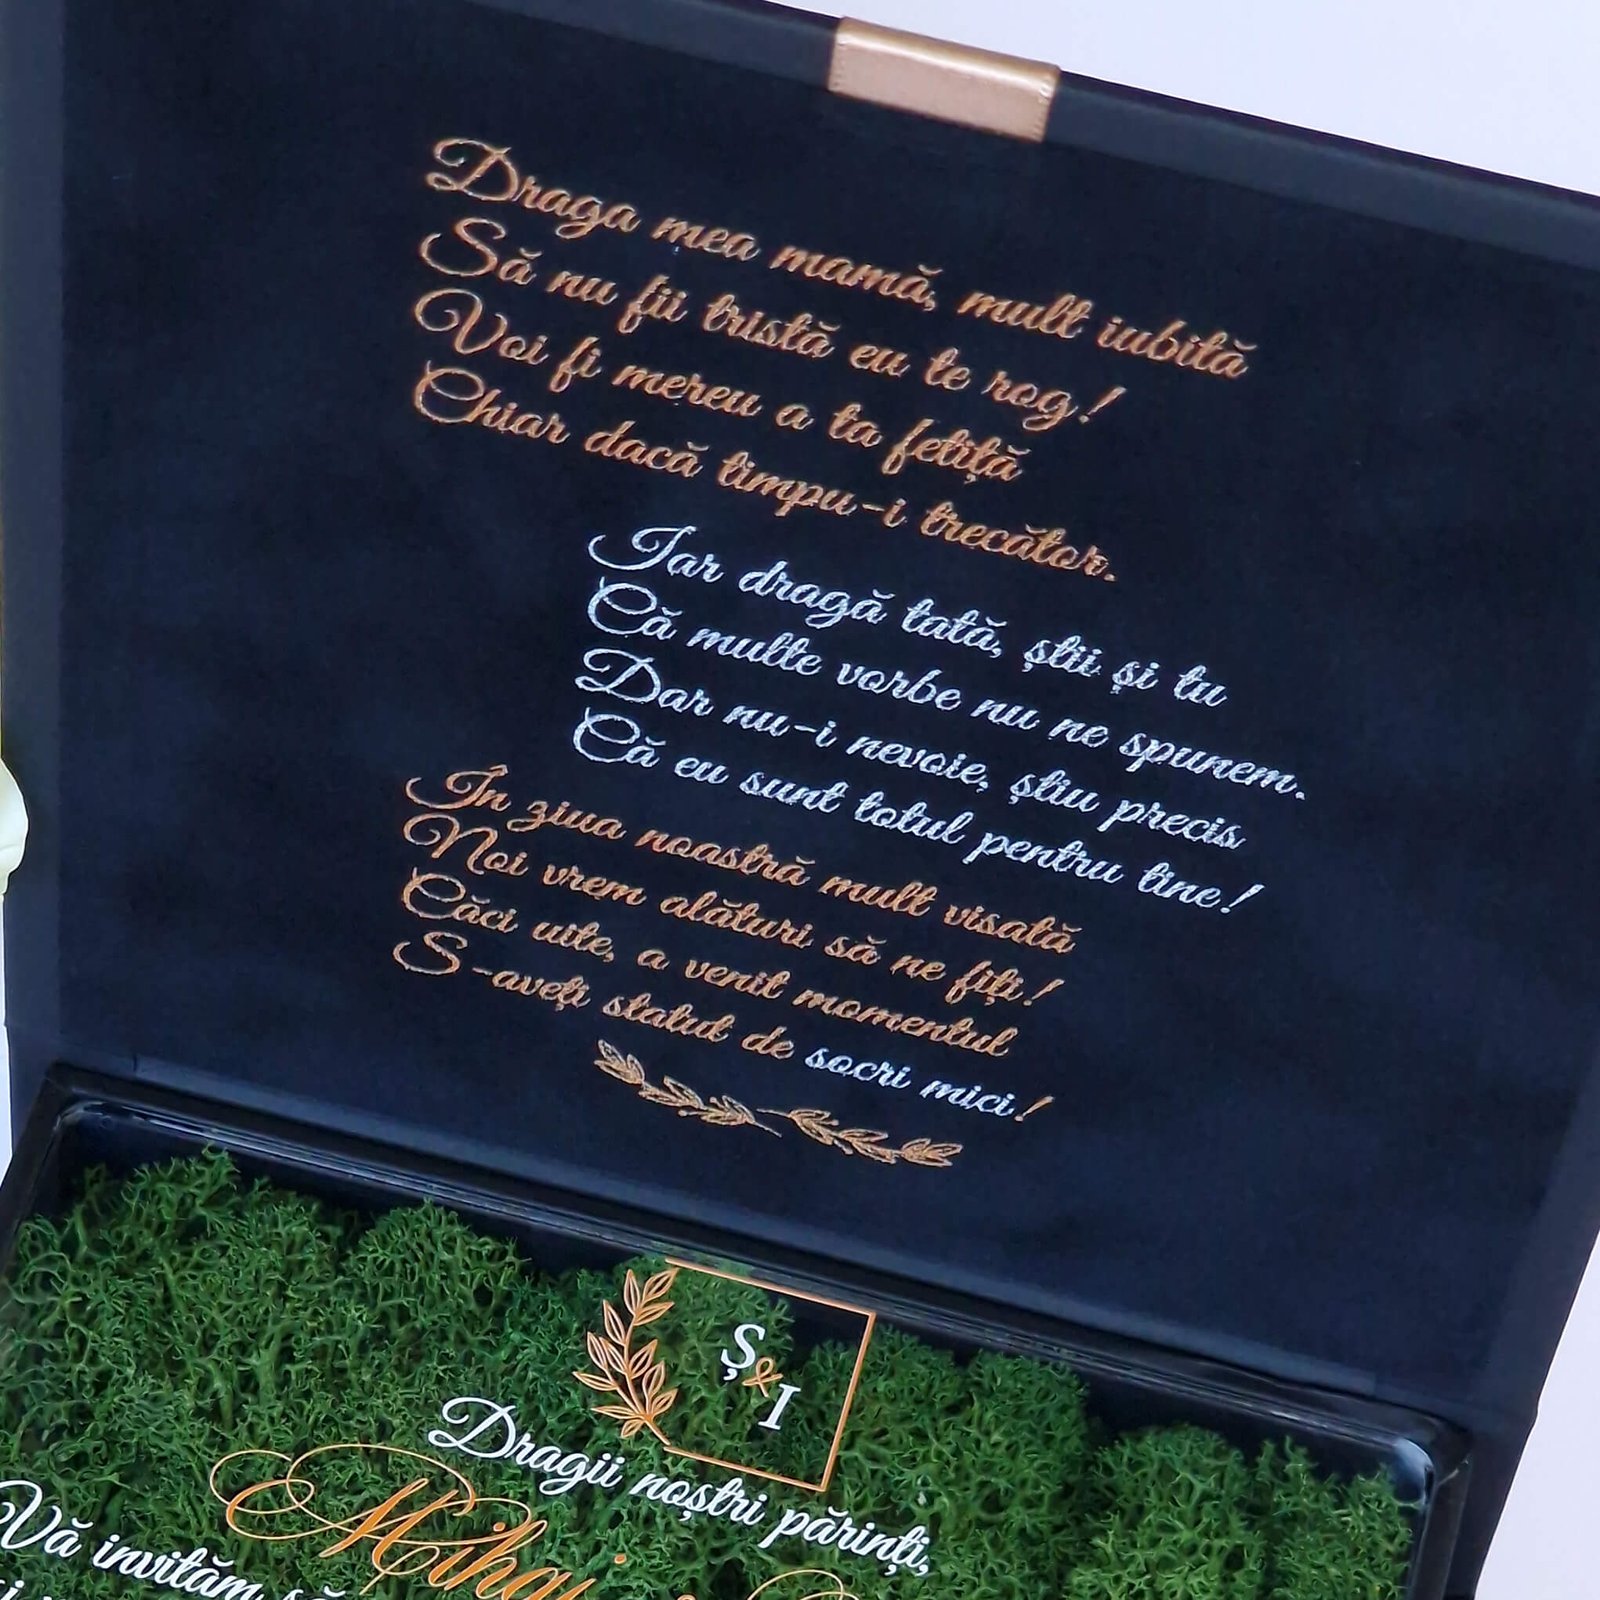 Draga mea mamă, mult iubită
Să nu fii tristă eu te rog!
Voi fi mereu a ta fetiță
Chiar dacă timpu-i trecător.
Iar dragă tată, știi și tu
Că multe vorbe nu ne spunem.
Dar nu-i nevoie, știu precis
Că eu sunt totul pentru tine!
În ziua noastră mult visată
Noi vrem alături să ne fiți!
Căci uite, a venit momentul
S-aveți statut de socri mici!
Ș&I
Dragii noștri părinți,
Vă invităm să